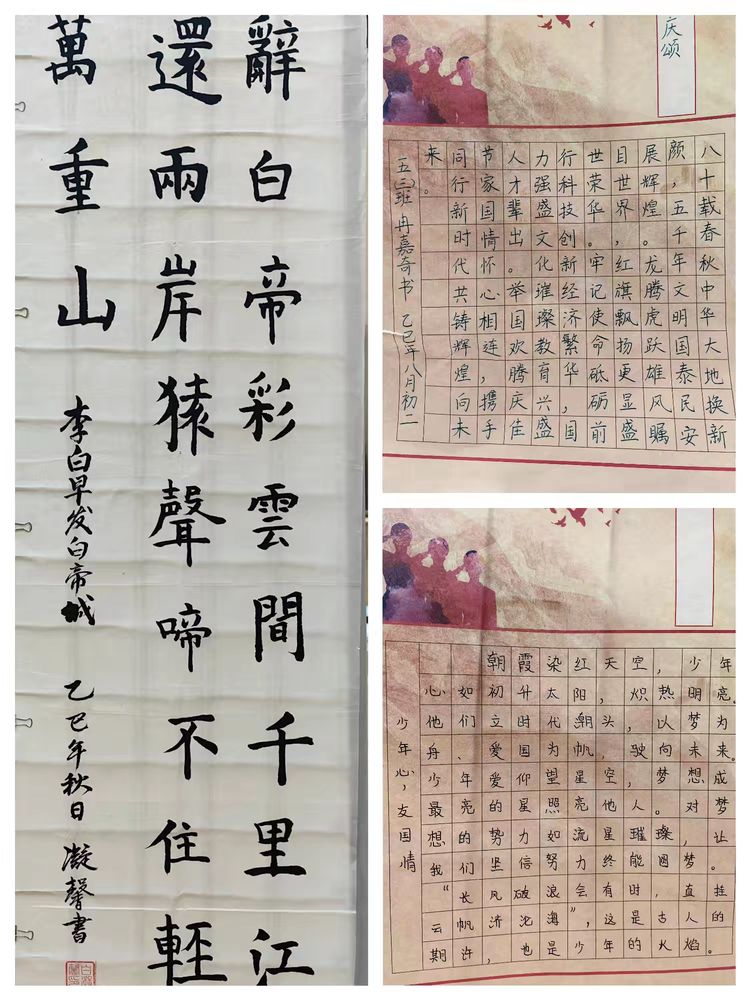 辭白帝彩雲間千里江
還兩岸猿聲啼不住輕
萬重山
李白早发白帝城 乙巳年秋日 凝馨書
庆颂
八十载春秋中华大地换新
颜，五千年文明国泰民安
展辉煌。龙腾虎跃雄风瞩
目世界，红旗飘扬更显盛
世荣华。牢记使命砥砺前
行科技创新经济繁华，国
力强盛文化璀璨教育兴盛
人才辈出。举国欢腾庆佳
节家国情怀心相连，携手
同行新时代共铸辉煌向未
来。
五(三)班 冉嘉奇书 乙巳年八月初二
朝霞染红天空，少年
心如初升太阳，炽热明亮。
他们立时代潮头，以梦为
舟、爱国为帆，驶向未来。
少年爱仰望星空，梦想成
最亮的星照亮他人。对梦
想的势力如流星璀璨，让
我们坚信努力终能圆梦。
“长风破浪会有时，直挂
云帆济沧海”，这是古人的
期许，也是少年的火焰。
少年心，友国情